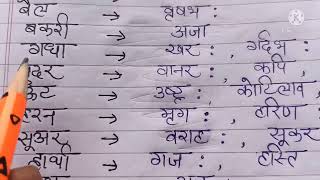 बैल → वृषभ :
बकरी → अजा
गधा → खर : , गर्दभ :
बंदर → वानर : , कपि
ऊँट → उष्ट्र : ,
हिरन → मृग : , हरिण :
सूअर → वराह : , सूकर
हाथी → गज : , हस्ति